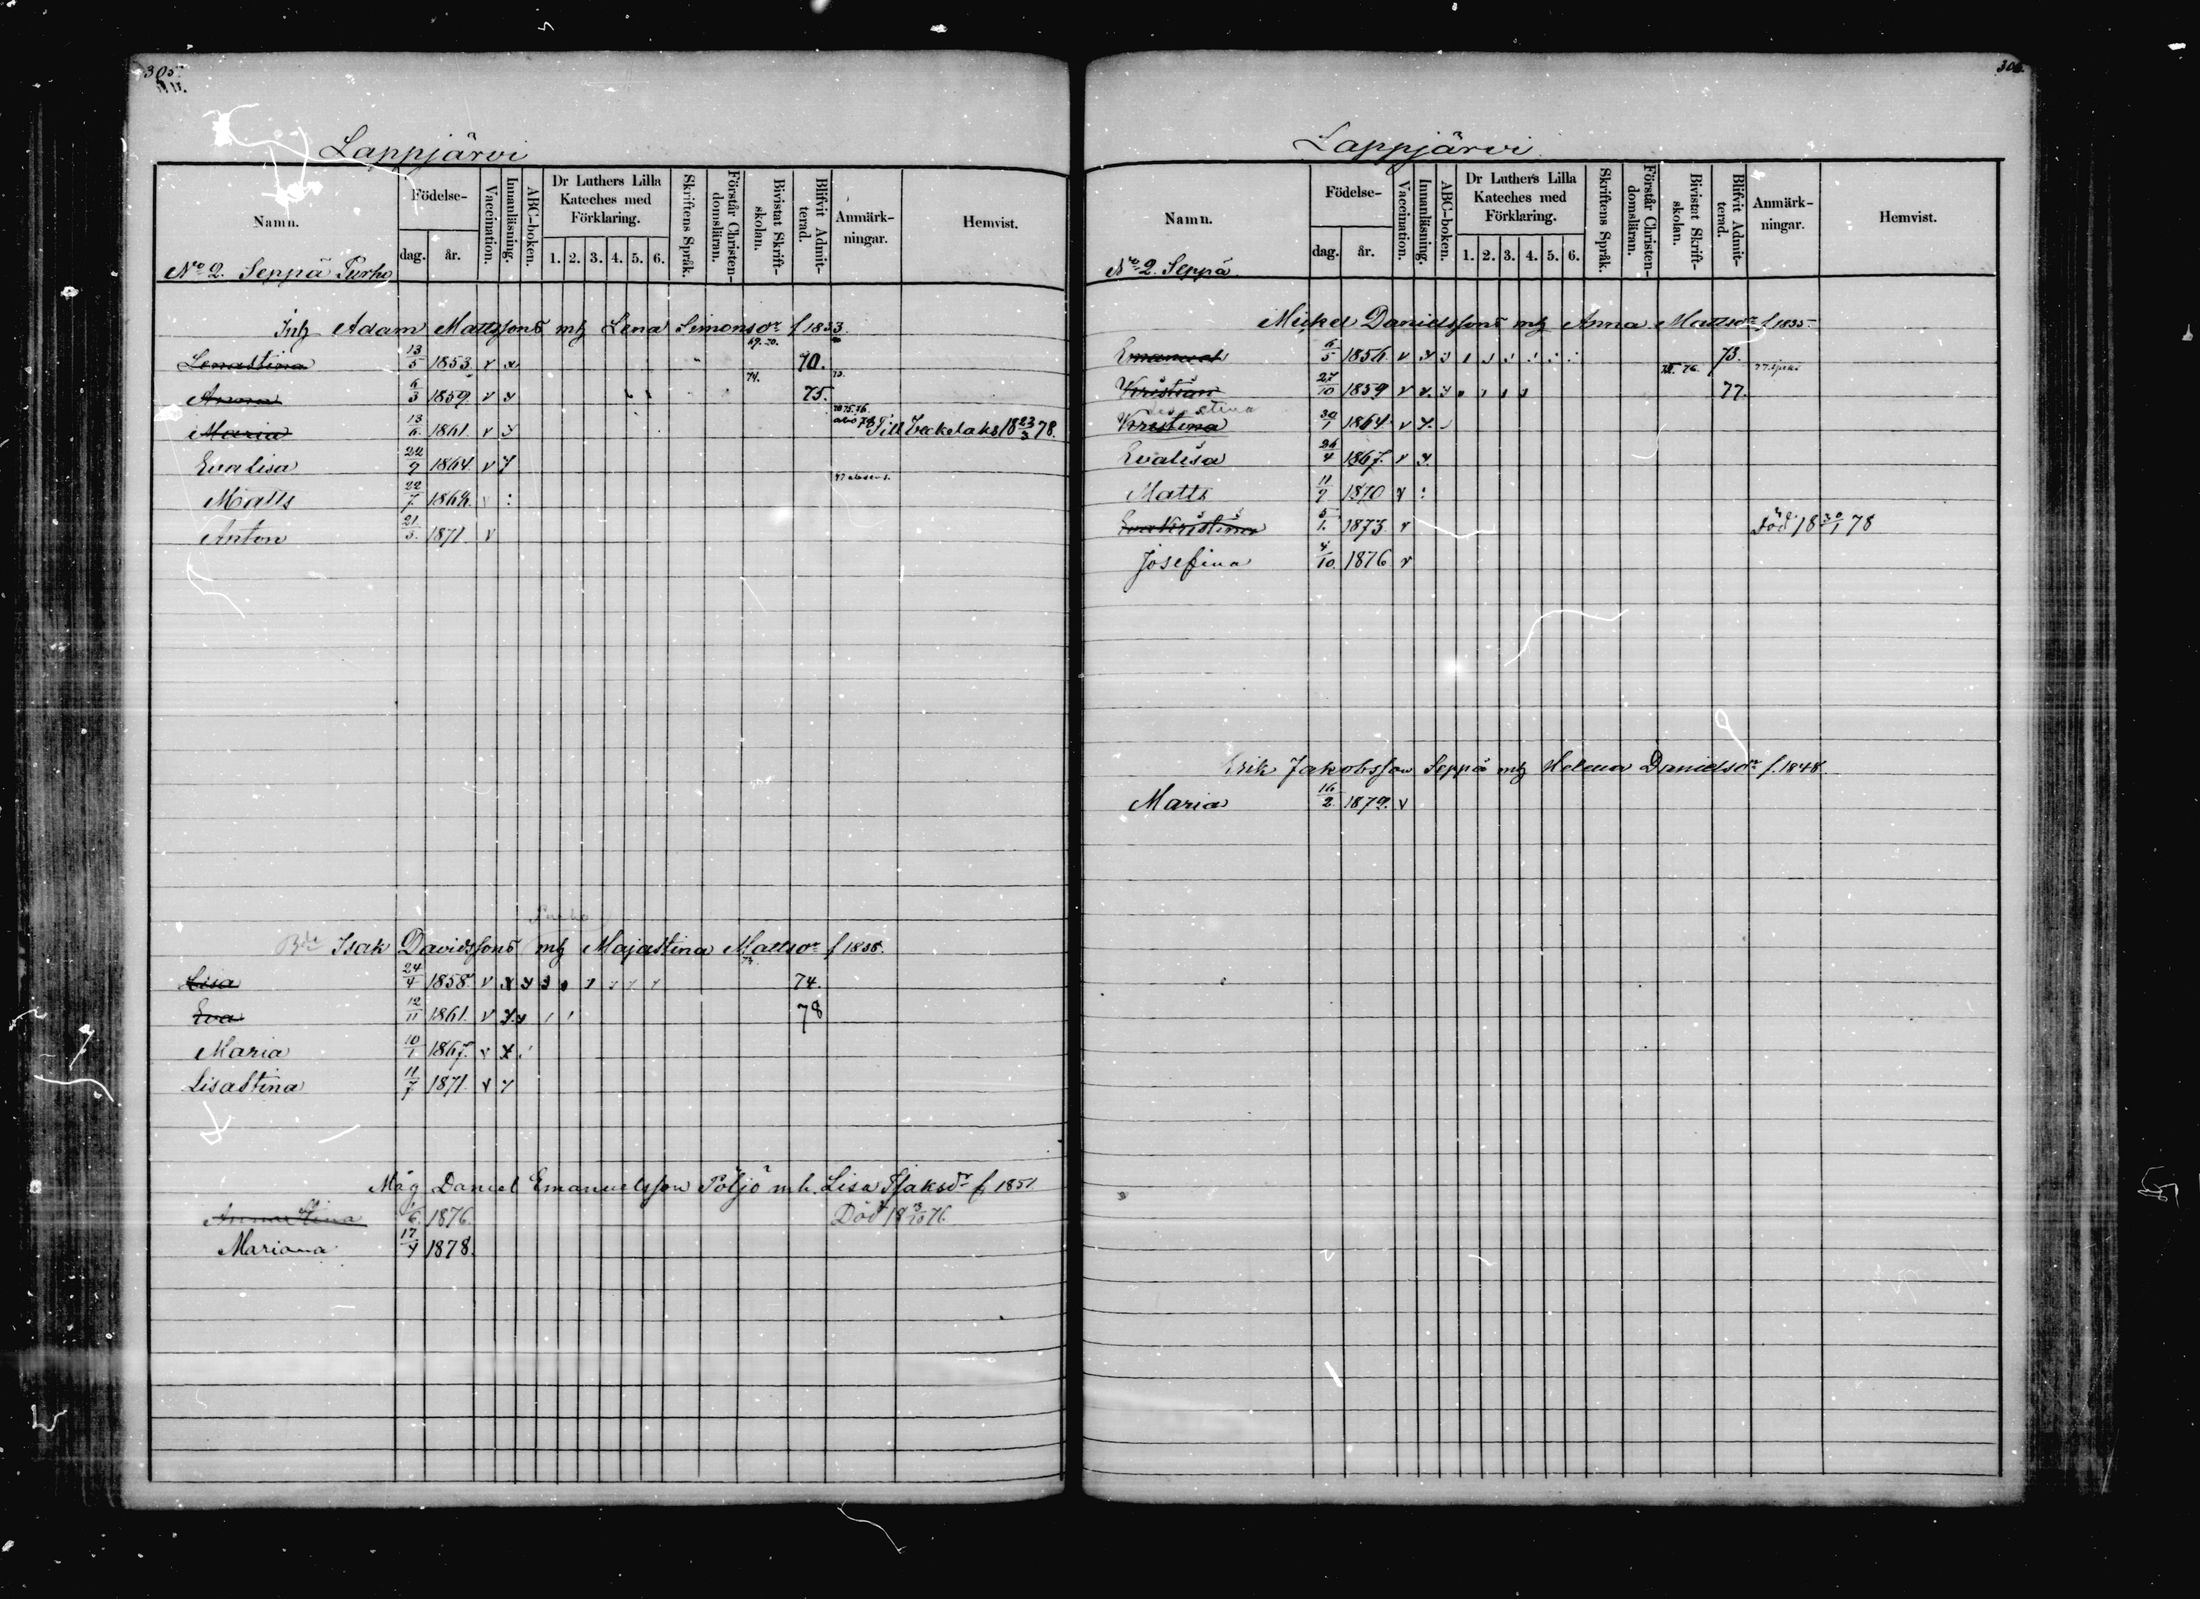 305.
Lappjärvi
Namn. Födelse- dag. år. Vaccination. Innanläsning. ABC-boken. Dr Luthers Lilla Kateches med Förklaring. 1. 2. 3. 4. 5. 6. Skriftens Språk. Förstår Christendomsläran. Bivistat Skriftskolan. Blifvit Admitterad. Anmärkningar. Hemvist.
No 2. Seppä Purho
Adam Mattssons Lena Simonsdr f 1833.
Lenastina 13/5 1853 v x 69. 70. 70.
Anna 6/3 1859. v x 74. 75.
Maria 13/6 1861. v x Till 18 23/3 78.
Evalisa 22/9 1864. v x
Matts 22/7 1868. v :
Anton 21/3. 1871. v
Isak Davidssons mh Majastina Mattsdr f 1838.
Lisa 24/4 1858 v x x 74.
Eva 12/11 1861. v x x 78
Maria 10/1 1867. v x
Lisastina 11/7 1871. v x
Måg Daniel Emanuelsson Pöljö mh. Lisa Isaksdr f 1851
Anna Stina 1876. Död
Mariana 17/4 1878.
306.
Lappjärvi
Namn. Födelse- dag. år. Vaccination. Innanläsning. ABC-boken. Dr Luthers Lilla Kateches med Förklaring. 1. 2. 3. 4. 5. 6. Skriftens Språk. Förstår Christendomsläran. Bivistat Skriftskolan. Blifvit Admitterad. Anmärkningar. Hemvist.
No 2. Seppä
Mickel Danielssons mh Anna Mattsdr f 1835.
Emanuel 6/5 1856. v x 73.
Kristian 27/10 1859 v x. 76. 77.
Kristina 30/1 1864. v x.
Evalisa 26/4 1867. v x.
Matts 11/9 1870 v :
Eva Kristina 5/1. 1873 v Död 18 30/1 78
Josefina 4/10. 1876 v
Erik Jakobsson Seppä mh Helena Danielsdr f. 1848.
Maria 16/2. 1879. v